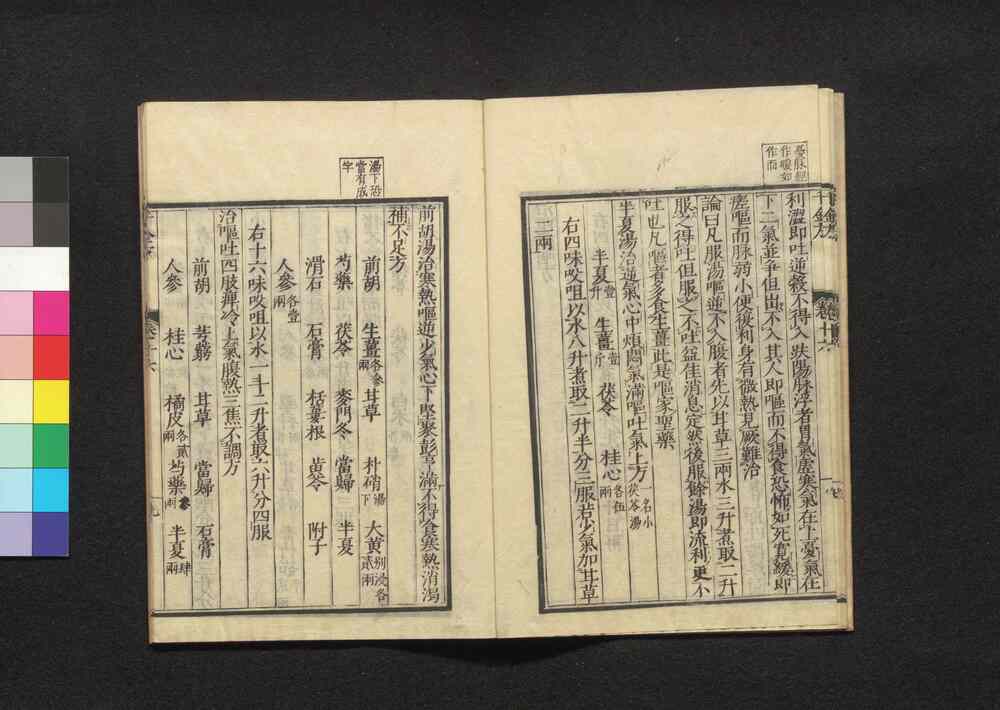 憂脉經
作噫如
作而
千金方
卷十六
利澀即吐逆穀不得入趺陽脉浮者胃氣虛寒氣在上憂氣在
下二氣並爭但出不入其人即嘔而不得食恐怖如死寬緩即
瘥嘔而脉弱小便復利身有微熱見厥難治
論曰凡服湯嘔逆不入腹者先以甘草三兩水三升煮取二升
服之得吐但服之不吐益佳消息定然後服餘湯即流利更不
吐也凡嘔者多食生薑此是嘔家聖藥
半夏湯治逆氣心中煩悶氣滿嘔吐氣上方一名小茯苓湯
半夏壹升 生薑壹斤 茯苓 桂心各伍兩
右四味㕮咀以水八升煮取二升半分三服若少氣加甘草
二兩
湯下恐
當有成
字
前胡湯治寒熱嘔逆少氣心下堅聚彭亨滿不得食寒熱消渴
補不足方
前胡 生薑各參兩 甘草 朴硝湯下 大黃別浸各貳兩
芍藥 茯苓 麥門冬 當歸 半夏
滑石 石膏 栝蔞根 黃芩 附子
人參各壹兩
右十六味㕮咀以水一斗二升者取六升分四服
治嘔吐四肢痹冷上氣腹熱三焦不調方
前胡 芎藭 甘草 當歸 石膏
人參 桂心 橘皮各貳兩 芍藥參兩 半夏肆兩